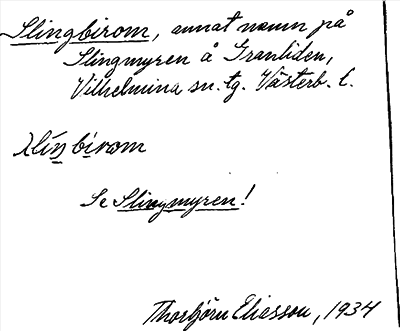 Slingbirom, annat namn på
Slingmyren å Granliden,
Vilhelmina sn. tg. Västerb. l.
bírom
Se Slingmyren!
Thorbjörn Eliasson, 1934